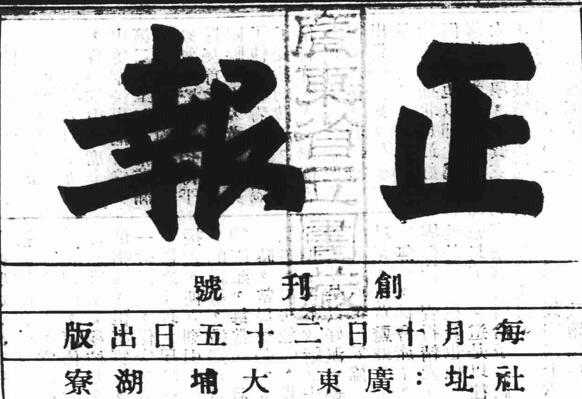 正報
創刊號
每月十日二十五日出版
社址：廣東大埔湖寮
廣東省立圖藏